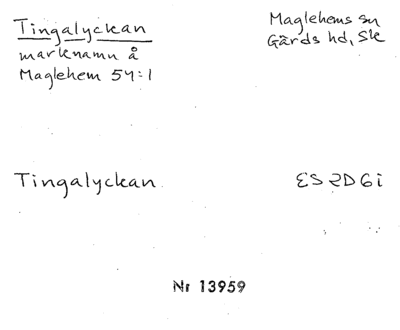 Tingalyckan
marknamn å
Maglehem 54:1
Maglehems sn
Gärds hd, Sk
Tingalyckan
ES 2D6i
Nr 13959